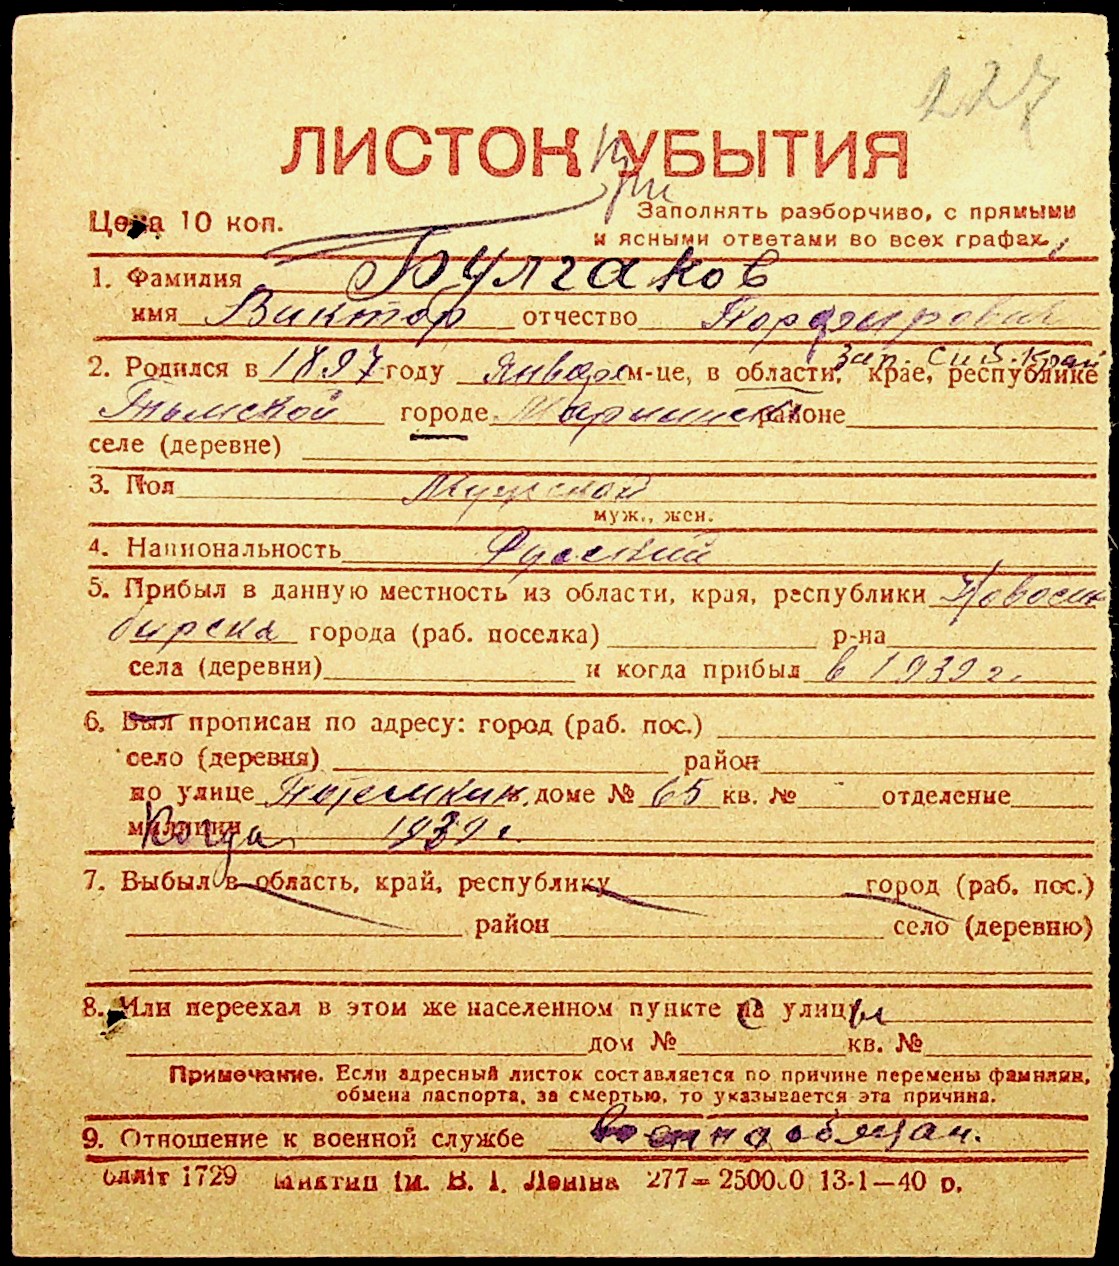 227
ЛИСТОК УБЫТИЯ
Цена 10 коп.
Заполнять разборчиво, с прямыми
и ясными ответами во всех графах.
1. Фамилия Булгаков
имя Виктор отчество Порфирович
Зап. Сиб. Край
2. Родился в 1897 году января м-це, в области, крае, республике
Тымской городе Мариинске районе
селе (деревне)
3. Пол Мужской
муж., жен.
4. Национальность Русский
5. Прибыл в данную местность из области, края, республики Новоси
бирска города (раб. поселка) р-на
села (деревни) и когда прибыл в 1939 г.
6. Был прописан по адресу: город (раб. пос.)
село (деревня) район
по улице Потемкин. доме № 65 кв. № отделение
милиции Когда 1939 г.
7. Выбыл в область, край, республику город (раб. пос.)
район село (деревню)
8. Или переехал в этом же населенном пункте с улицы
дом № кв. №
Примечание. Если адресный листок составляется по причине перемены фамилии,
обмена паспорта, за смертью, то указывается эта причина.
9. Отношение к военной службе Военнообязан.
Облліт 1729 ім. В. І. Леніна 277—250000 13-1—40 р.